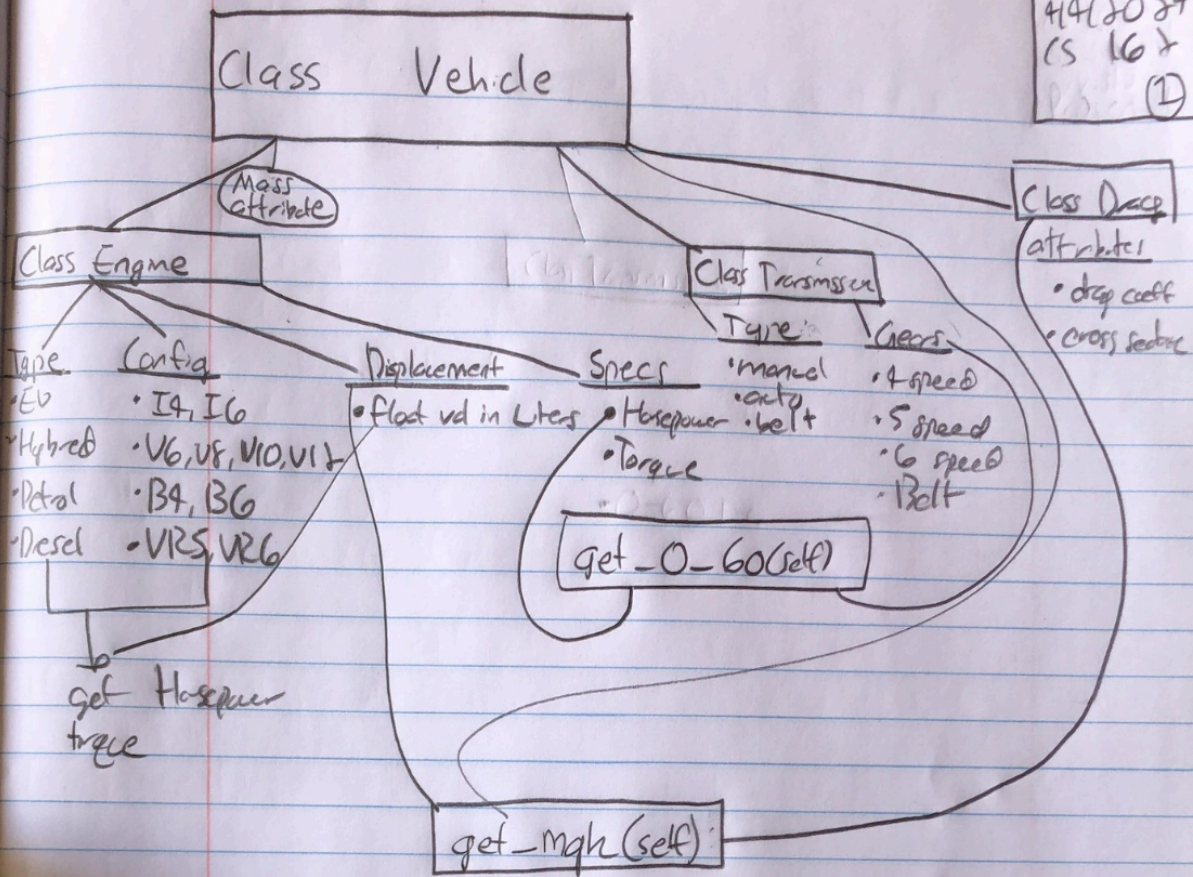 4/4/2024
CS 162
①
Class Vehicle
Mass
attribute
Class Engine
Class Transmssen
Class Drag
attributes
• drag coeff
• cross section
Type
• EV
• Hybred
• Petrol
• Diesel
Config
• I4, I6
• V6, V8, V10, V12
• B4, B6
• VR5, VR6
Displacement
• float val in Liters
Specs
• Horsepower
• Torque
Type:
• manual
• auto
• belt
Gears
• 4 speed
• 5 speed
• 6 speed
• Belt
get_0_60(self)
get Horsepower
torque
get_mgh(self)